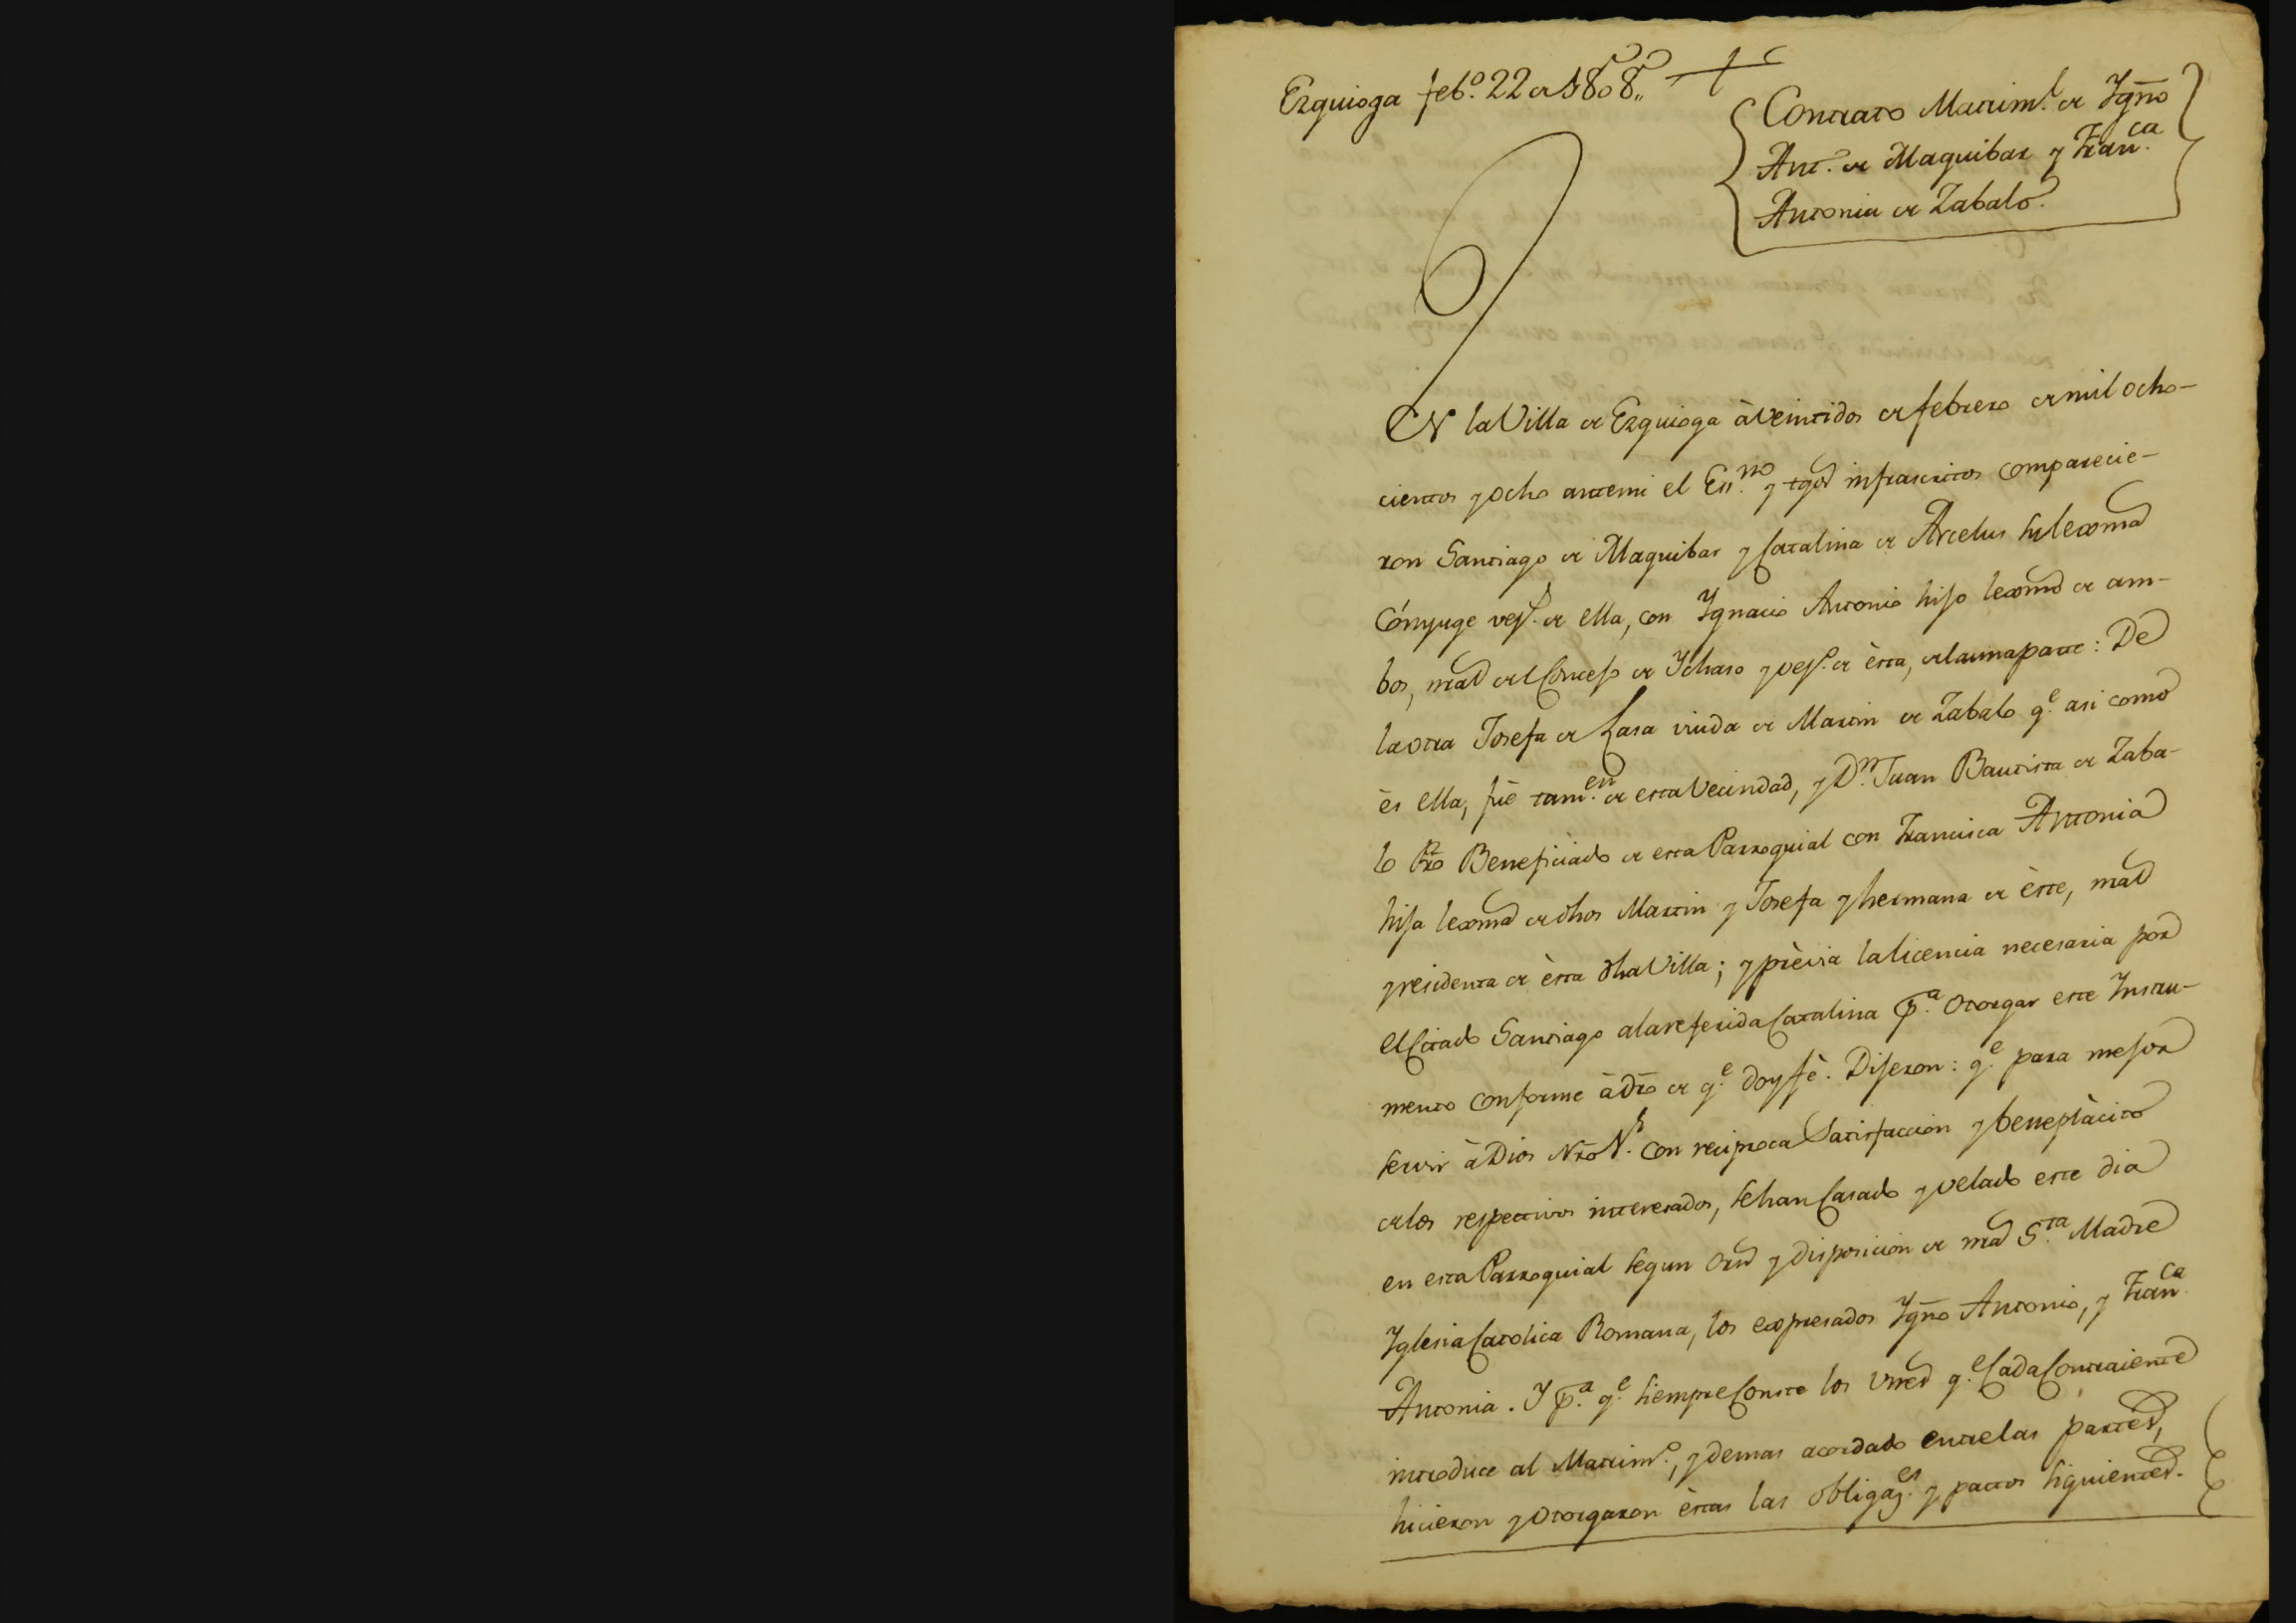 Ezquioga feb.º 22 de 1808,,
Contrato Matrim.l de Ygn̄o
Ant.º de Maquibar y Fran.ca
Antonia de Zabalo.
EN la Villa de Ezquioga à veintidos de febrero de mil ocho-
cientos y ocho antemi el Es.no y tgos infrascritos comparecie-
ron Santiago de Maquibar y Catalina de Arcelus su lexma
Cónyuge vez.s de ella, con Ygnacio Antonio hijo lexmo de am-
bos, nral del Concejo de Ychaso y vez.º de èsta, de la una parte: De
la otra Josefa de Lasa viuda de Martin de Zabalo q.e asi como
ès ella, fuè tam.en de esta Vecindad, y D.n Juan Bautista de Zaba-
lo Pr̄o Beneficiado de esta Parroquial con Francisca Antonia
hija lexma de dhos Martin y Josefa y hermana de èste, nral
y residenta de èsta dha Villa; y prèvia la licencia necesaria por
el Citado Santiago a la referida Catalina p.a Otorgar este Instru-
mento conforme à dr̄o de q.e doy fè. Dijeron: q.e para mejor
servir à Dios Nr̄o S.r con reciproca Satisfaccion y beneplàcito
de los respectivos interesados, se han Casado y velado este dia
en esta Parroquial segun Orn y disposicion de nra S.ta Madre
Yglesia Catolica Romana, los expresados Ygn̄o Antonio, y Fran.ca
Antonia. Y p.a q.e siempre Conste los vnes q.e Cada Contraiente
introduce al Matrim.º, y demas acordado entre las partes,
hicieron y Otorgaron èstas las obligaz.es y pactos siguientes.